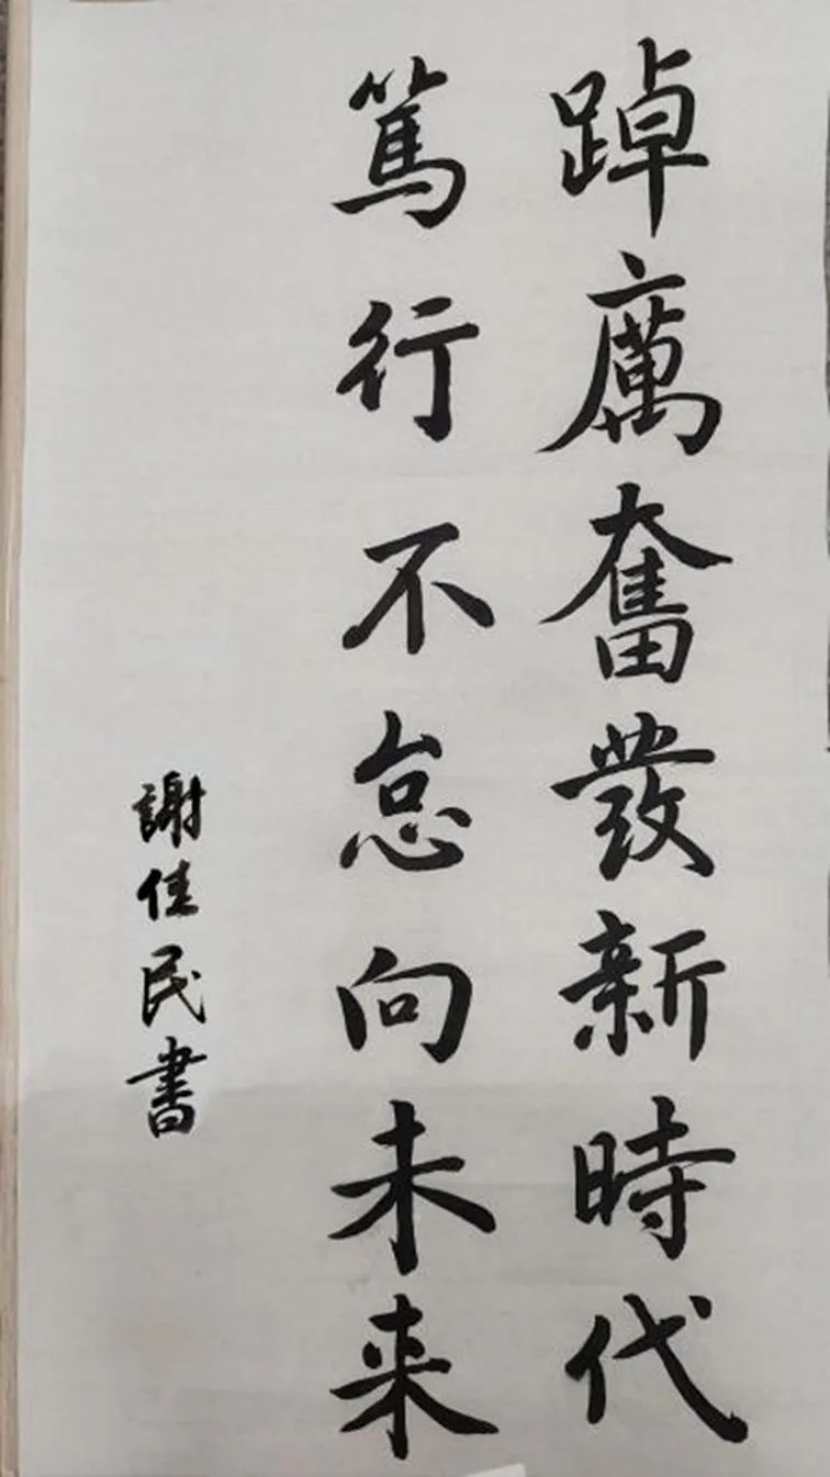 踔厲奮發新時代
篤行不怠向未来
謝佳民書